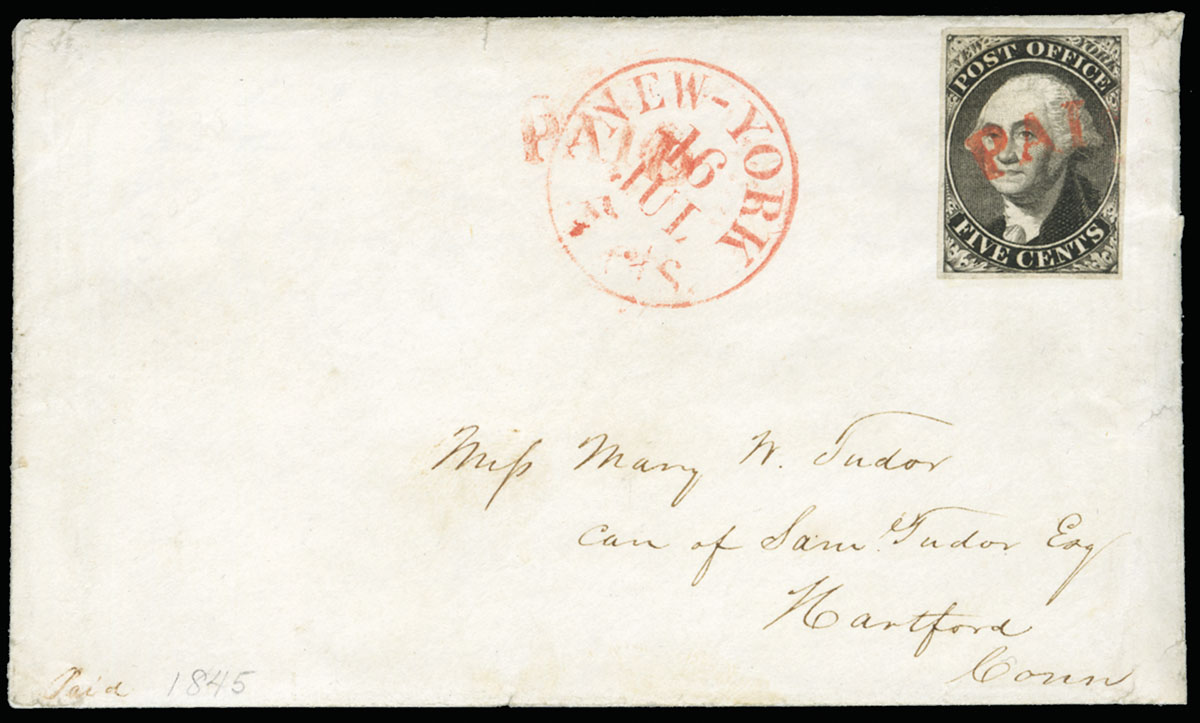 NEW YORK
POST OFFICE
PAI
FIVE CENTS
PAID
NEW-YORK
16
JUL
5 cts
Miss Mary W. Tudor
care of Sam. Tudor Esq
Hartford
Conn
Paid 1845